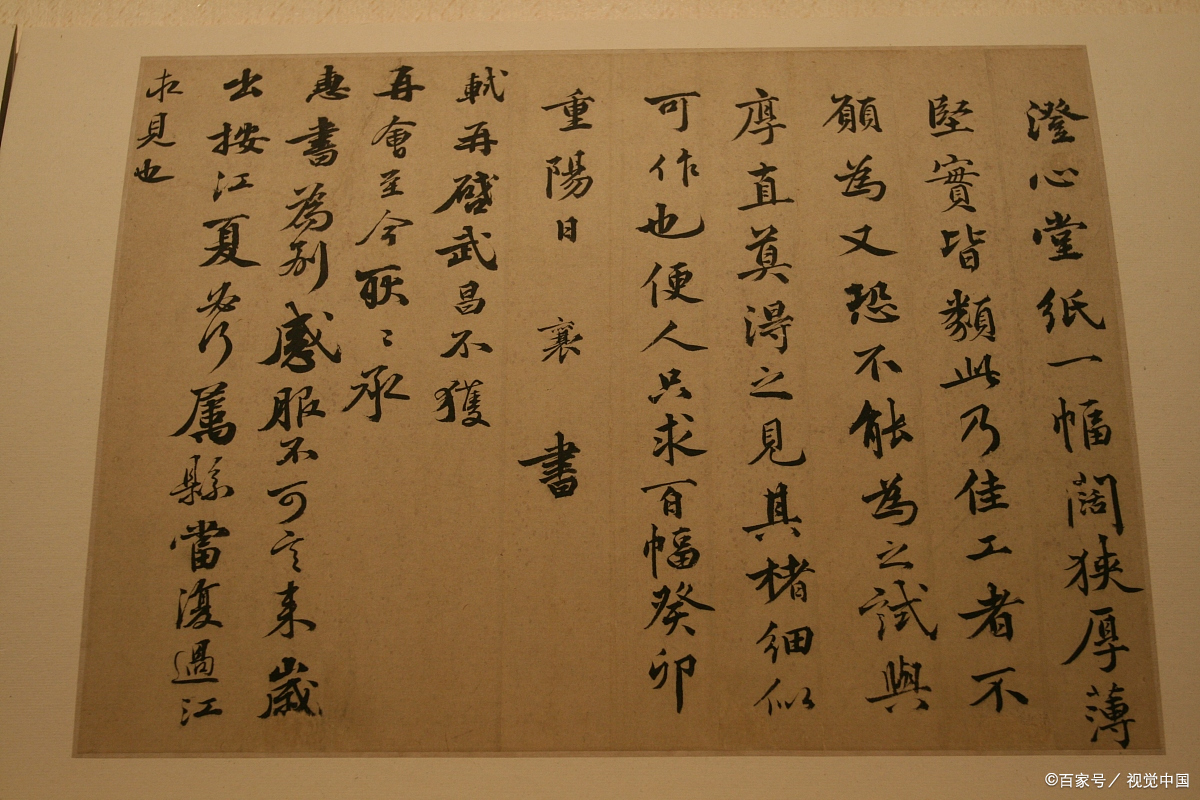 澄心堂紙一幅闊狹厚薄
堅實皆類此乃佳工者不
願為又恐不能為之試與
厚直莫淂之見其楮細似
可作也便人只求百幅癸卯
重陽日 襄 書
軾再啓武昌不獲
再會至今耿〻承
惠書為別感服不可言来歲
出按江夏必行屬縣當復過江
見也
©百家号／视觉中国